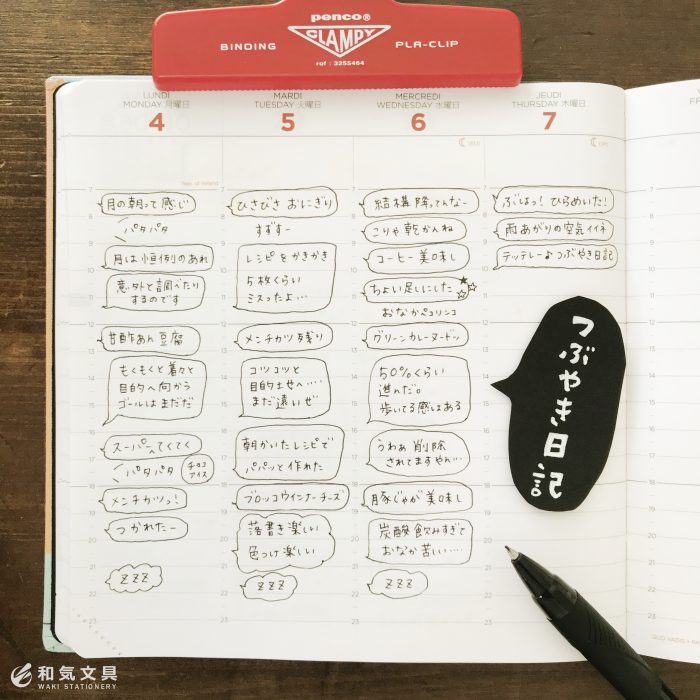 penco®
CLAMPY
BINDING
PLA-CLIP
ref : 3255464
LUNDI
MONDAY 月曜日
4
MARDI
TUESDAY 火曜日
5
MERCREDI
WEDNESDAY 水曜日
6
JEUDI
THURSDAY 木曜日
7
Rep. of Ireland
月の朝って感じ
パタパタ
月は恒例のあれ
意外と調べたり
するのです
甘酢あん豆腐
もくもくと着々と
目的へ向かう
ゴールはまだだ
スーパーへてくてく
パタパタ
チョコ
アイス
メンチカツっ!
つかれたー
ZZZ
ひさびさ おにぎり
すずすー
レシピをかきかき
5枚くらい
ミスったよ…
メンチカツ残り
コツコツと
目的土せへ…
まだ遠いぜ
朝かいたレシピで
パパッと作れた
ブロッコウインナーチーズ
落書き楽しい
色つけ楽しい
ZZZ
結構降ってんなー
こりゃ乾かんね
コーヒー美味し
ちょい足しにした
おなかペコリンコ
グリーンカレーヌードッ
50%くらい
進んだ。
歩いてる感じはある
うわぁ 削除
されてますやん…
豚じゃが美味し
炭酸飲みすぎで
おなか苦しい…
ZZZ
ぶはっ!ひらめいた!
雨あがりの空気イイネ
テッテレーよつぶやき日記
つぶやき日記
和気文具
WAKI STATIONERY